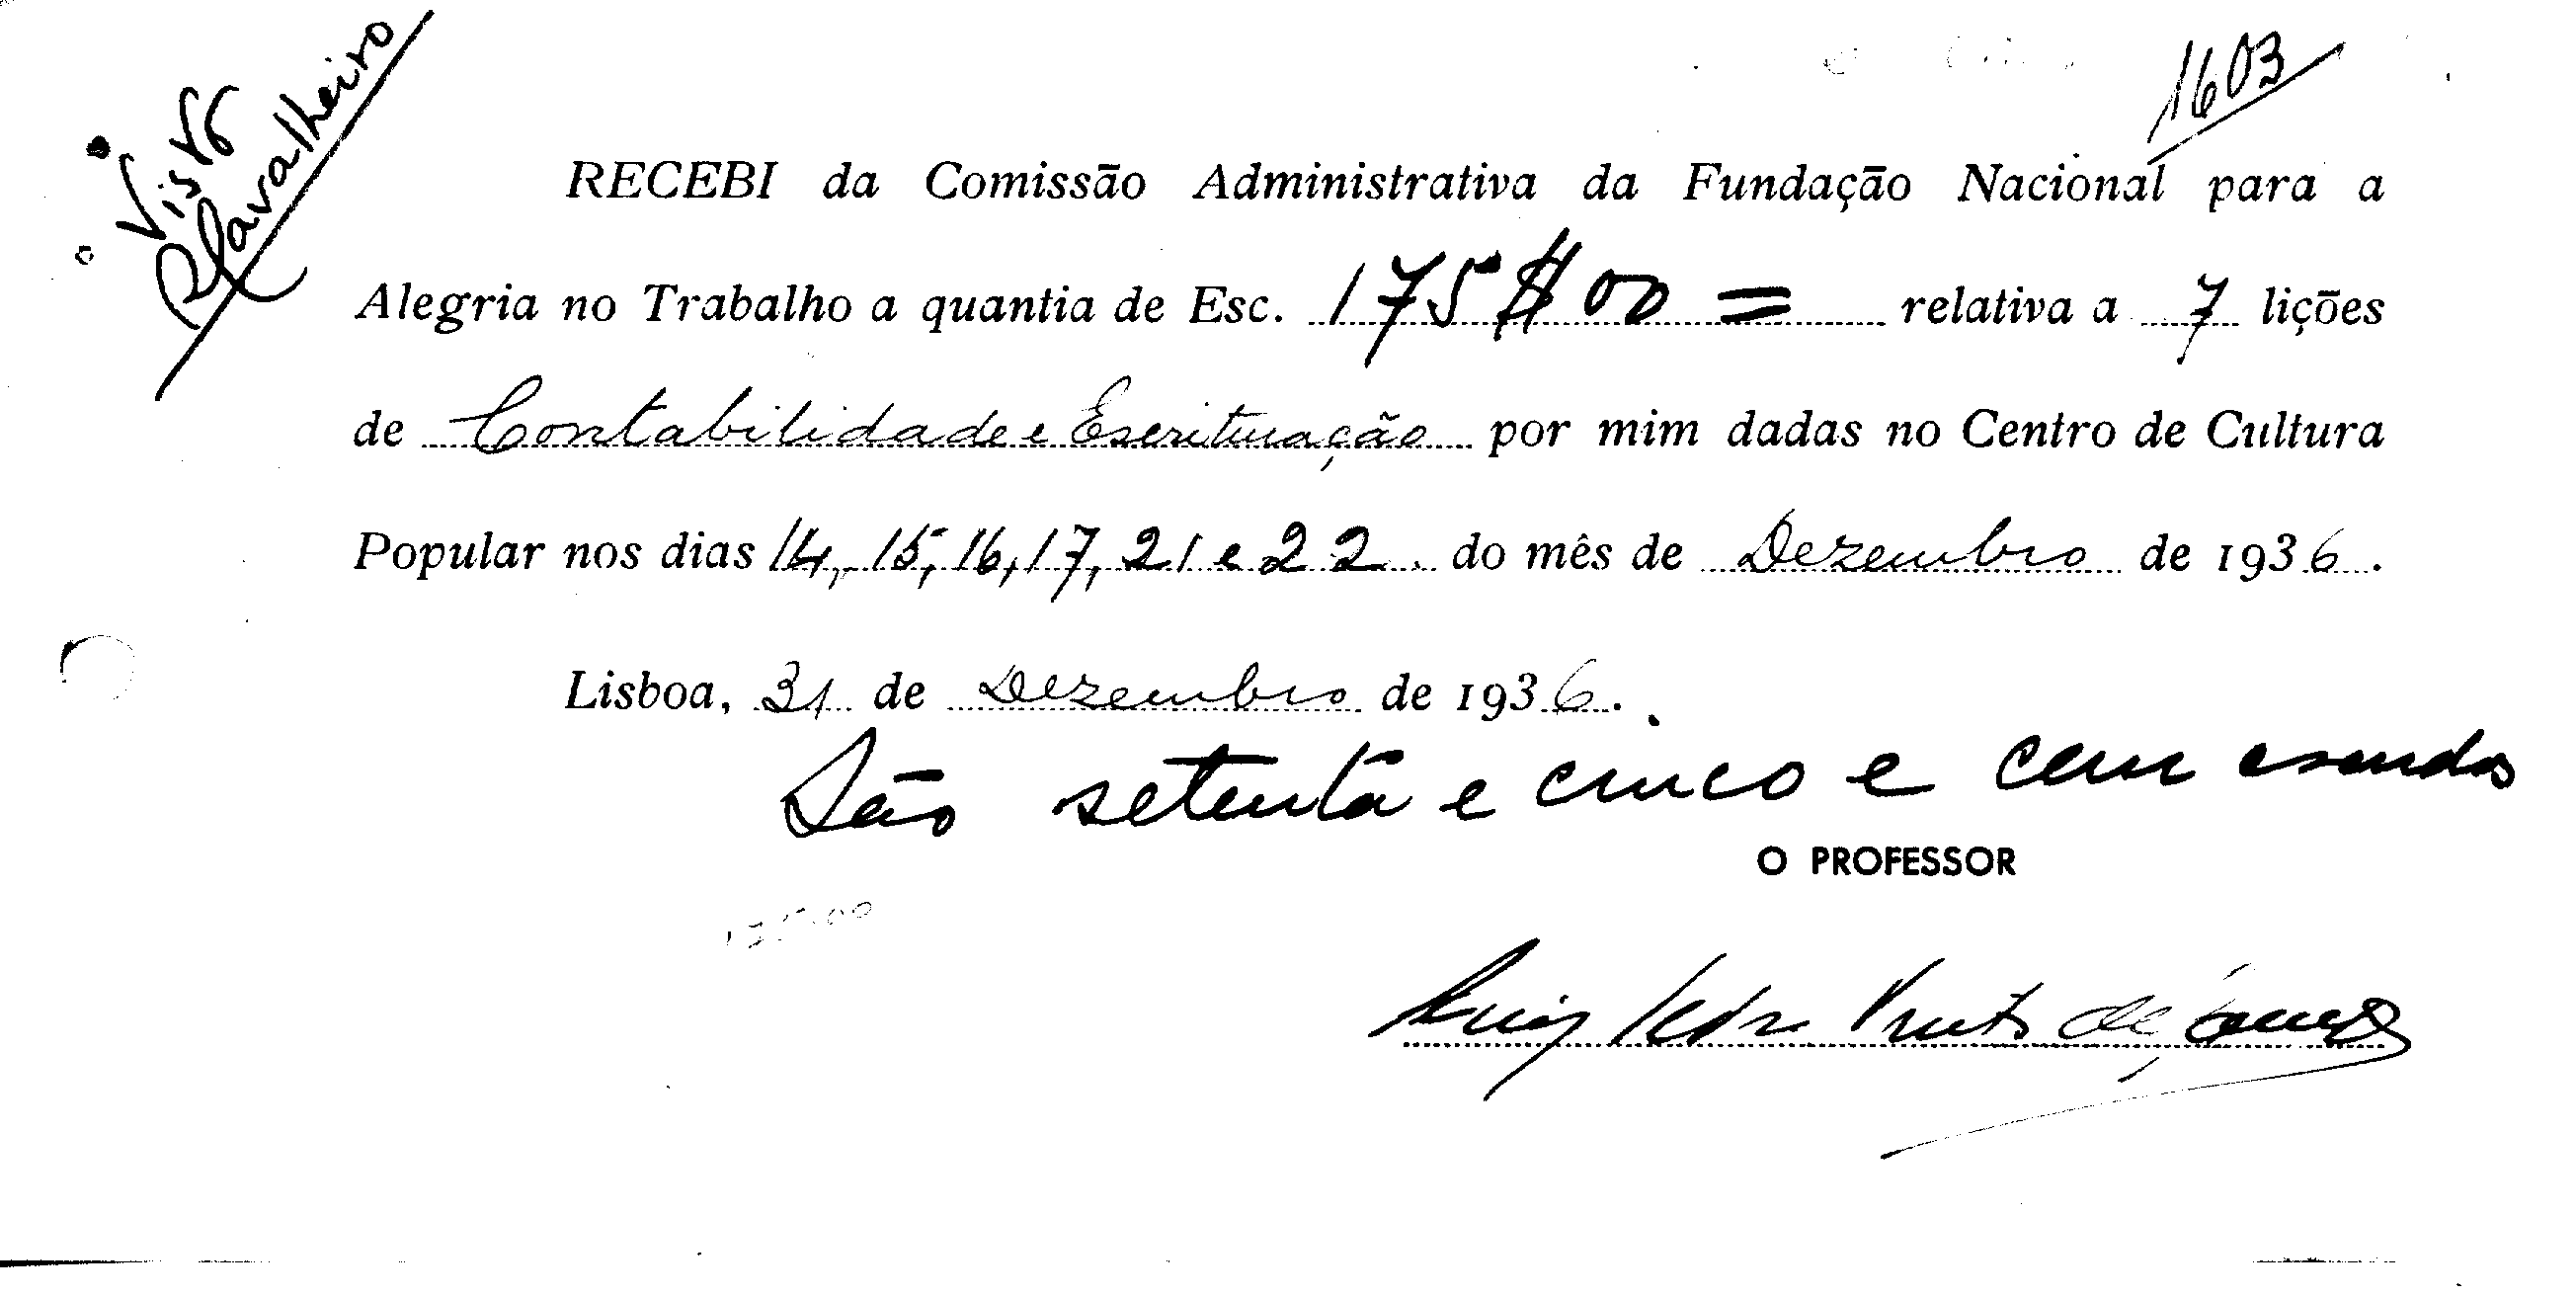 Visto
RCavalheiro
1603
RECEBI da Comissão Administrativa da Fundação Nacional para a
Alegria no Trabalho a quantia de Esc. 175$00 = relativa a 7 lições
de Contabilidade e Escrituração por mim dadas no Centro de Cultura
Popular nos dias 14, 15, 16, 17, 21 e 22 do mês de Dezembro de 1936.
Lisboa, 31 de Dezembro de 1936.
São setenta e cinco e cem escudos
O PROFESSOR
Luiz de